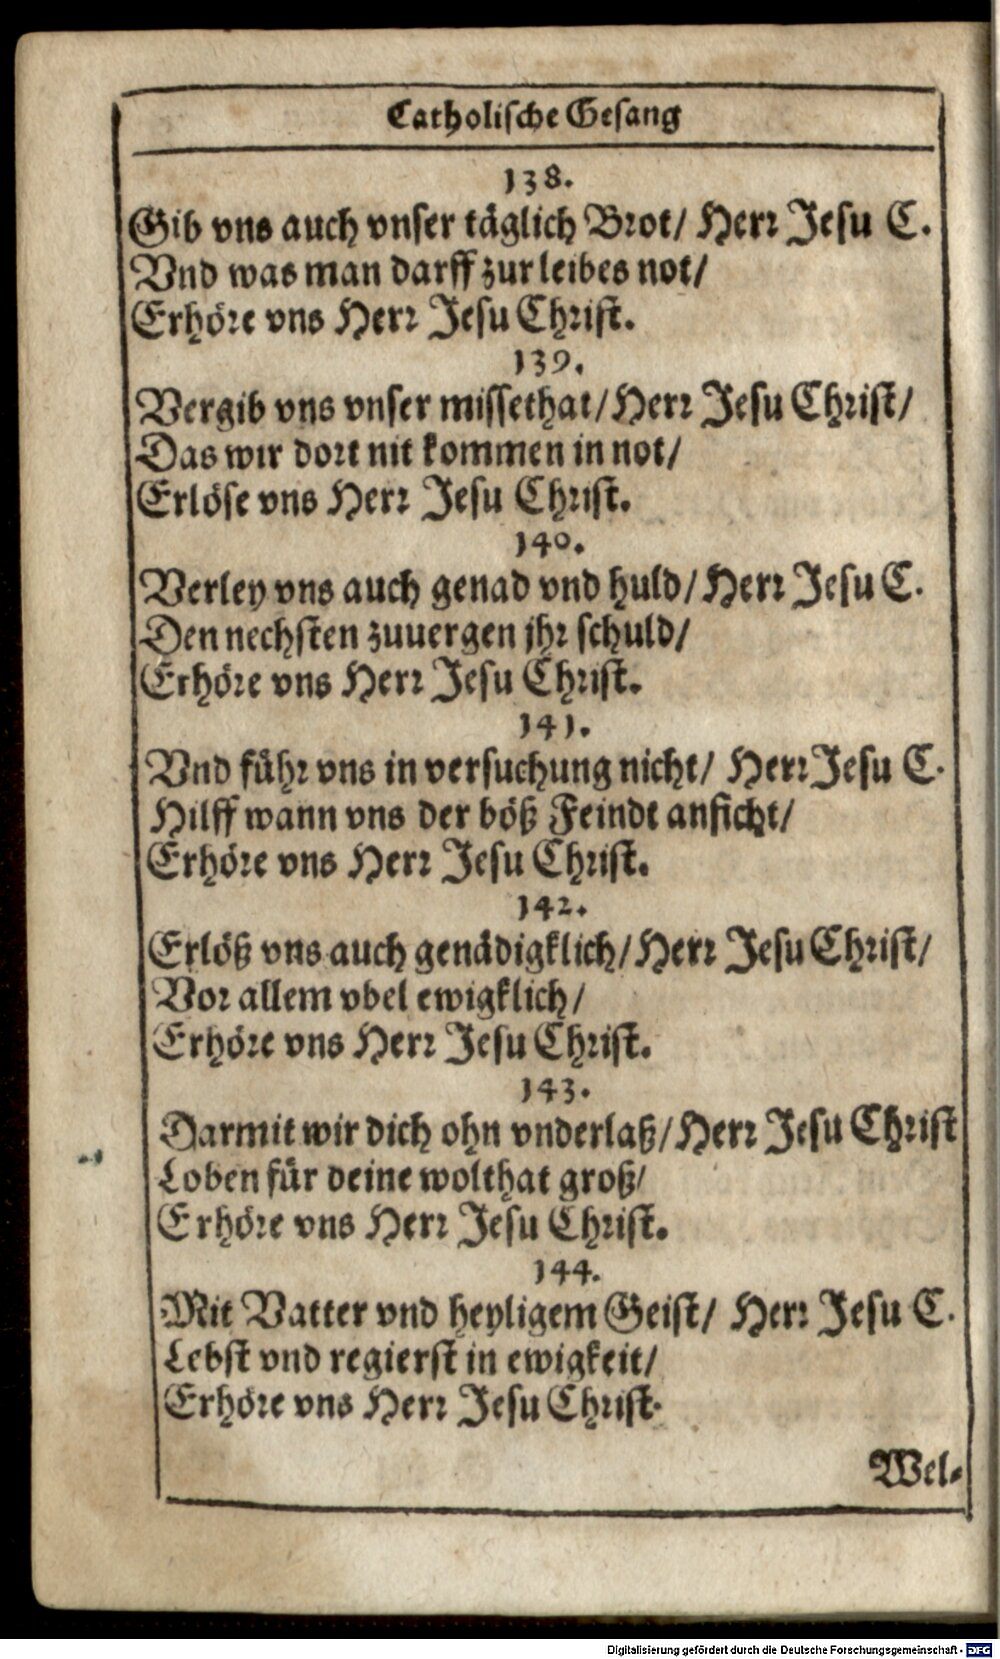 Catholische Gesang
138.
Gib vns auch vnser täglich Brot/ Herr Jesu C.
Vnd was man darff zur leibes not/
Erhöre vns Herr Jesu Christ.
139.
Vergib vns vnser missethat/ Herr Jesu Christ/
Das wir dort nit kommen in not/
Erlöse vns Herr Jesu Christ.
140.
Verley vns auch genad vnd huld/ Herr Jesu C.
Den nechsten zuuergen jhr schuld/
Erhöre vns Herr Jesu Christ.
141.
Vnd führ vns in versuchung nicht/ Herr Jesu C.
Hilff wann vns der böß Feindt anficht/
Erhöre vns Herr Jesu Christ.
142.
Erlöß vns auch genädigklich/ Herr Jesu Christ/
Vor allem vbel ewigklich/
Erhöre vns Herr Jesu Christ.
143.
Darmit wir dich ohn vnderlaß/ Herr Jesu Christ
Loben für deine wolthat groß/
Erhöre vns Herr Jesu Christ.
144.
Mit Vatter vnd heyligem Geist/ Herr Jesu C.
Lebst vnd regierst in ewigkeit/
Erhöre vns Herr Jesu Christ.
Wel-
Digitalisierung gefördert durch die Deutsche Forschungsgemeinschaft - DFG